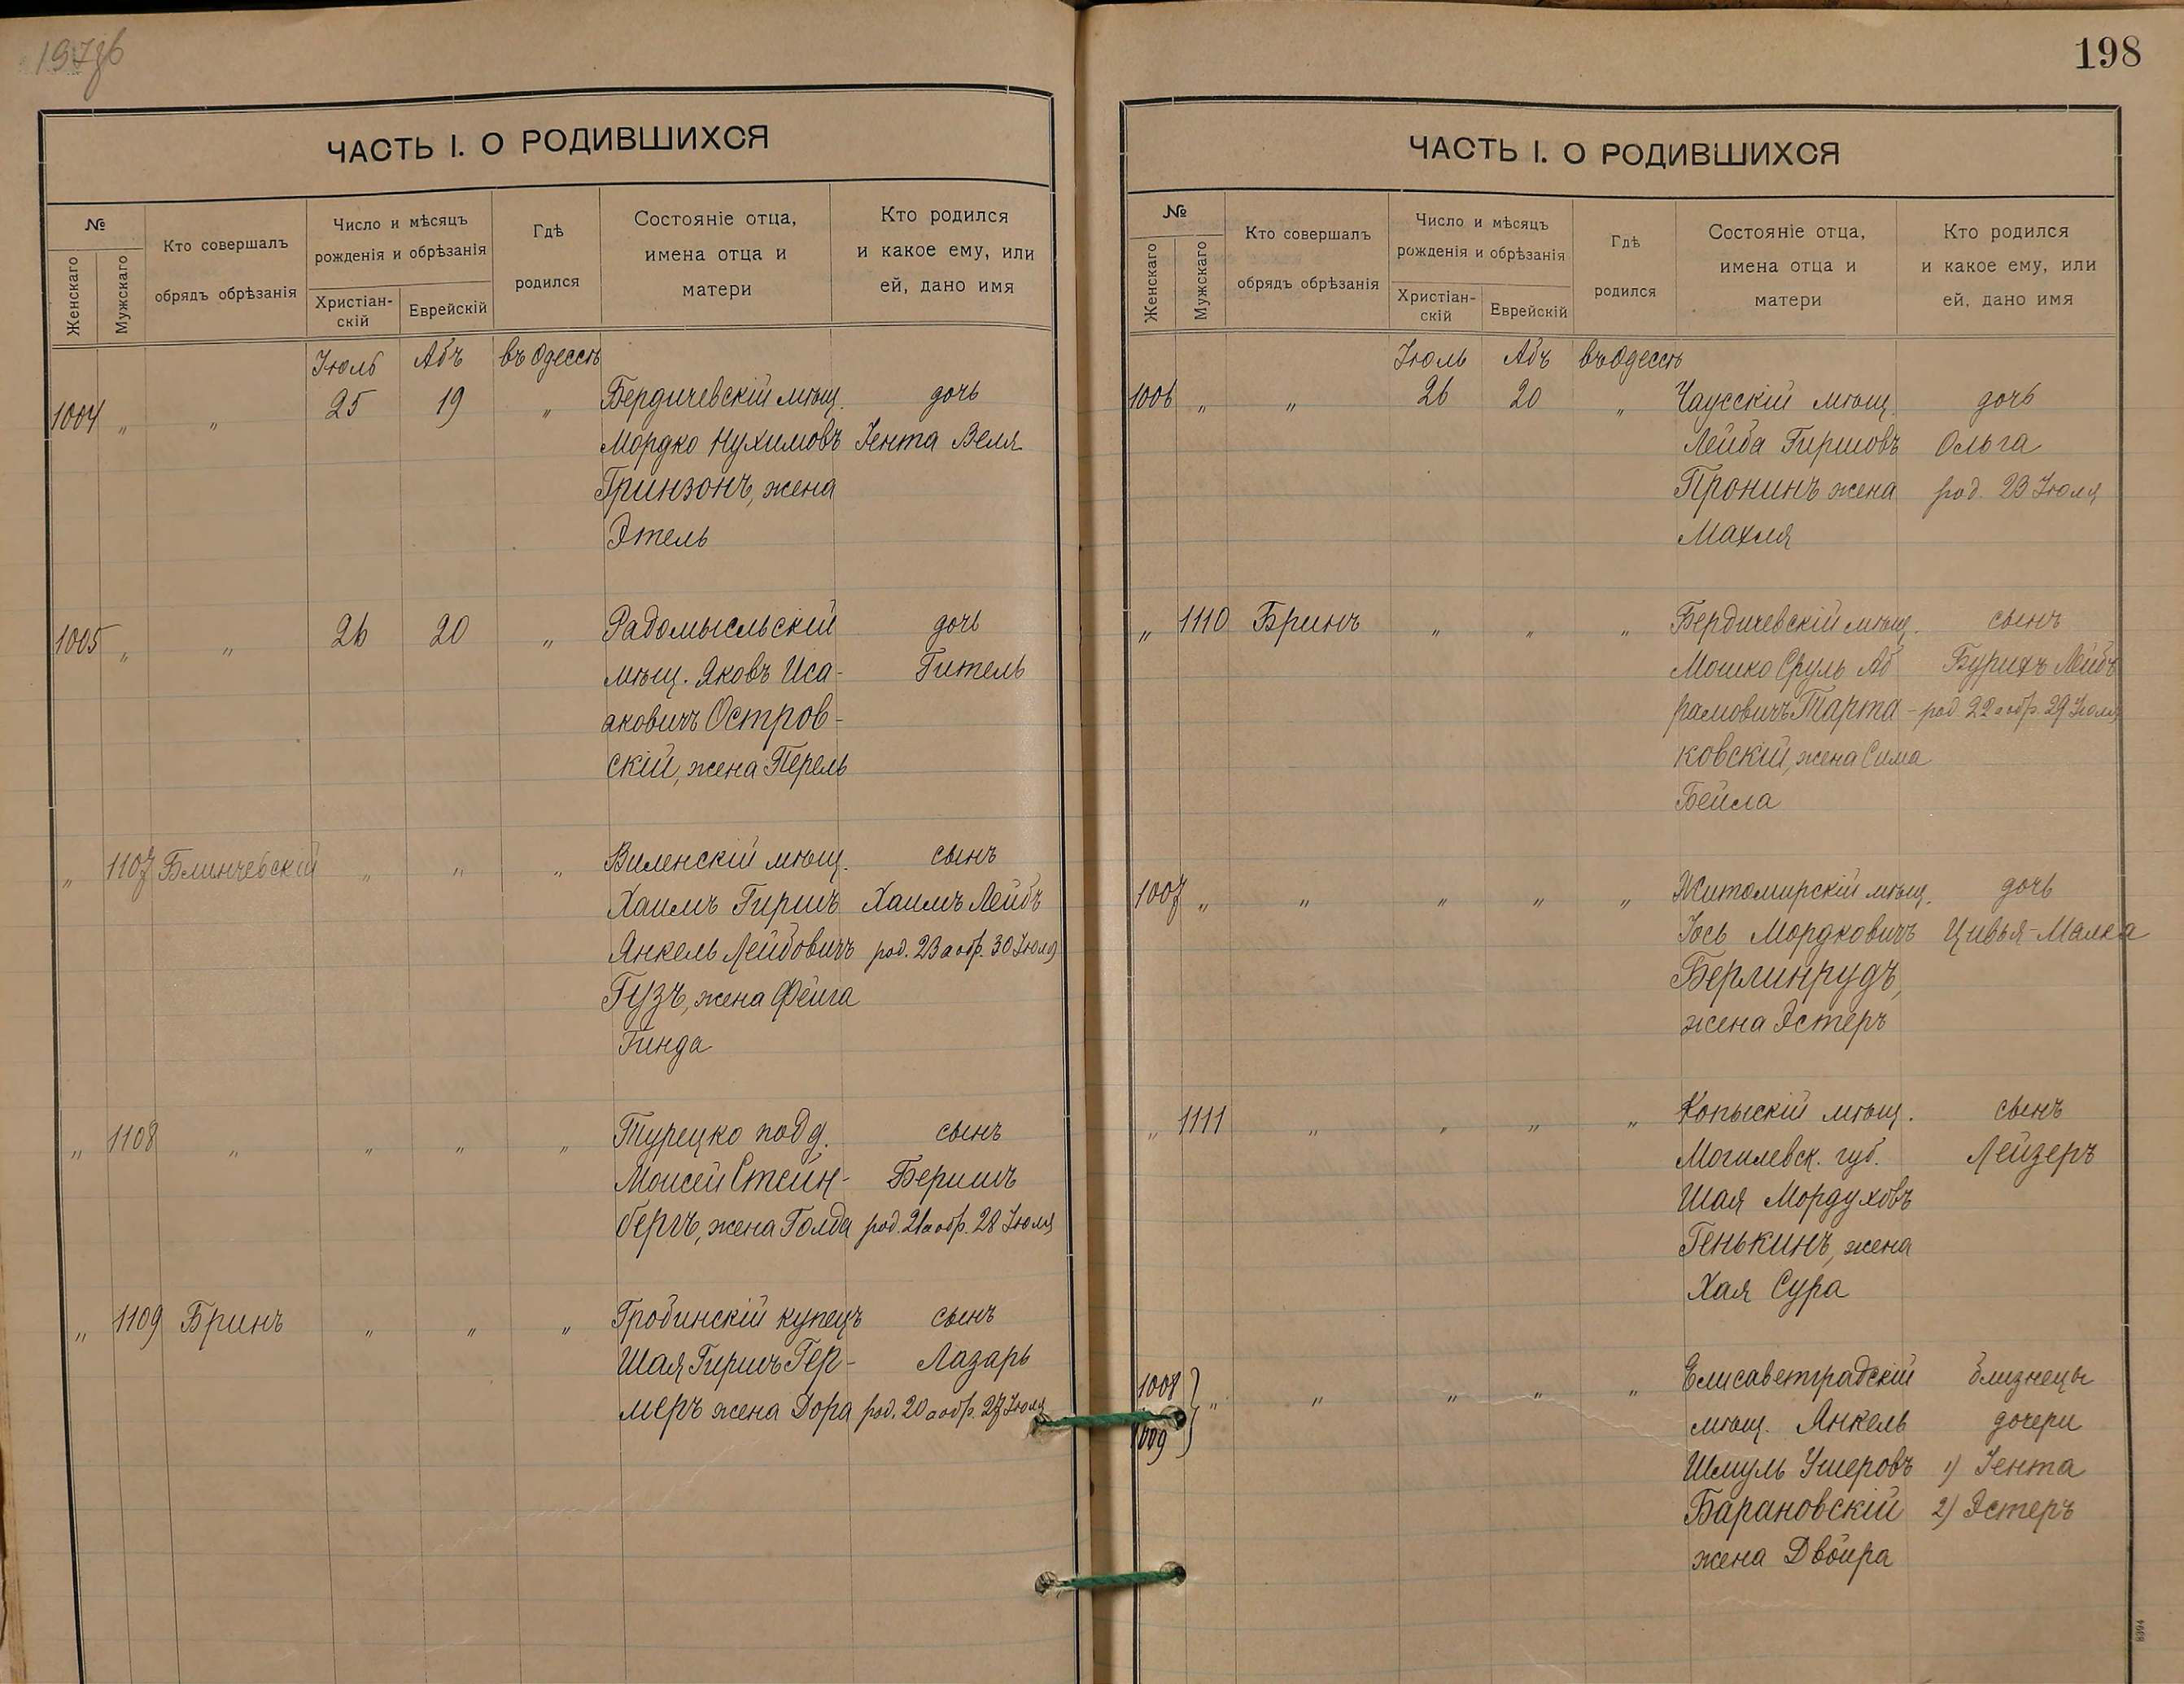 197об
ЧАСТЬ I. О РОДИВШИХСЯ
№
Женскаго
Мужскаго
Кто совершалъ
обрядъ обрѣзанія
Число и мѣсяцъ
рожденія и обрѣзанія
Христіан-
скій
Еврейскій
Гдѣ
родился
Состояніе отца,
имена отца и
матери
Кто родился
и какое ему, или
ей, дано имя
Іюль Абъ въ Одессѣ
1004 " " 25 19 " Бердичевскій мѣщ. дочь
Мордко Нухимовъ Іента Веля
Гринзонъ, жена
Этель
1005 " " 26 20 " Радомысльскій дочь
мѣщ. Яковъ Иса- Гитель
аковичъ Остров-
скій, жена Перель
" 1107 Блинчевскій " " " Виленскій мѣщ. сынъ
Хаимъ Гиршъ Хаимъ Лейбъ
Янкель Лейбовичъ род. 23 а обр. 30 Іюля
Гузъ, жена Фейга
Гинда
" 1108 " " " " Турецко подд. сынъ
Моисей Стейн- Беришъ
бергъ, жена Голда род. 21 а обр. 28 Іюля
" 1109 Бринъ " " " Гробинскій купецъ сынъ
Шая Гиршъ Гер- Лазарь
меръ жена Дора род. 20 а обр. 27 Іюля
198
ЧАСТЬ I. О РОДИВШИХСЯ
№
Женскаго
Мужскаго
Кто совершалъ
обрядъ обрѣзанія
Число и мѣсяцъ
рожденія и обрѣзанія
Христіан-
скій
Еврейскій
Гдѣ
родился
Состояніе отца,
имена отца и
матери
Кто родился
и какое ему, или
ей, дано имя
Іюль Абъ въ Одессѣ
1006 " " 26 20 " Чаусскій мѣщ. дочь
Лейба Гиршовъ Ольга
Пронинъ жена род. 23 Іюля
Махля
" 1110 Бринъ " " " Бердичевскій мѣщ. сынъ
Мошко Сруль Аб Бурихъ Лейбъ
рамовичъ Тарта- род 22 а обр. 29 Іюля
ковскій, жена Сима
Бейла
1007 " " " " " Житомирскій мѣщ. дочь
Іось Мордковичъ Цивья-Малка
Берлинрудъ,
жена Эстеръ
" 1111 " " " " Копыскій мѣщ. сынъ
Могилевск. губ. Лейзеръ
Шая Мордуховъ
Генькинъ, жена
Хая Сура
1008 " " " " " Елисаветградскій близнецы
1009 мѣщ. Янкель дочери
Шмуль Ушеровъ 1) Іента
Барановскій 2) Эстеръ
жена Двойра